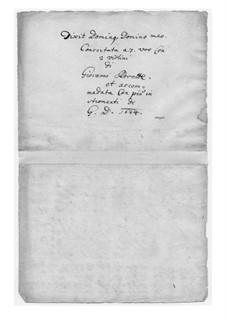 Dixit Doming. Domino meo.
Concertata a 7. voc Con
2 violini
di
Giovanni Rovetta.
et accom
modata Con più in
stromenti di
G. D. 1664.